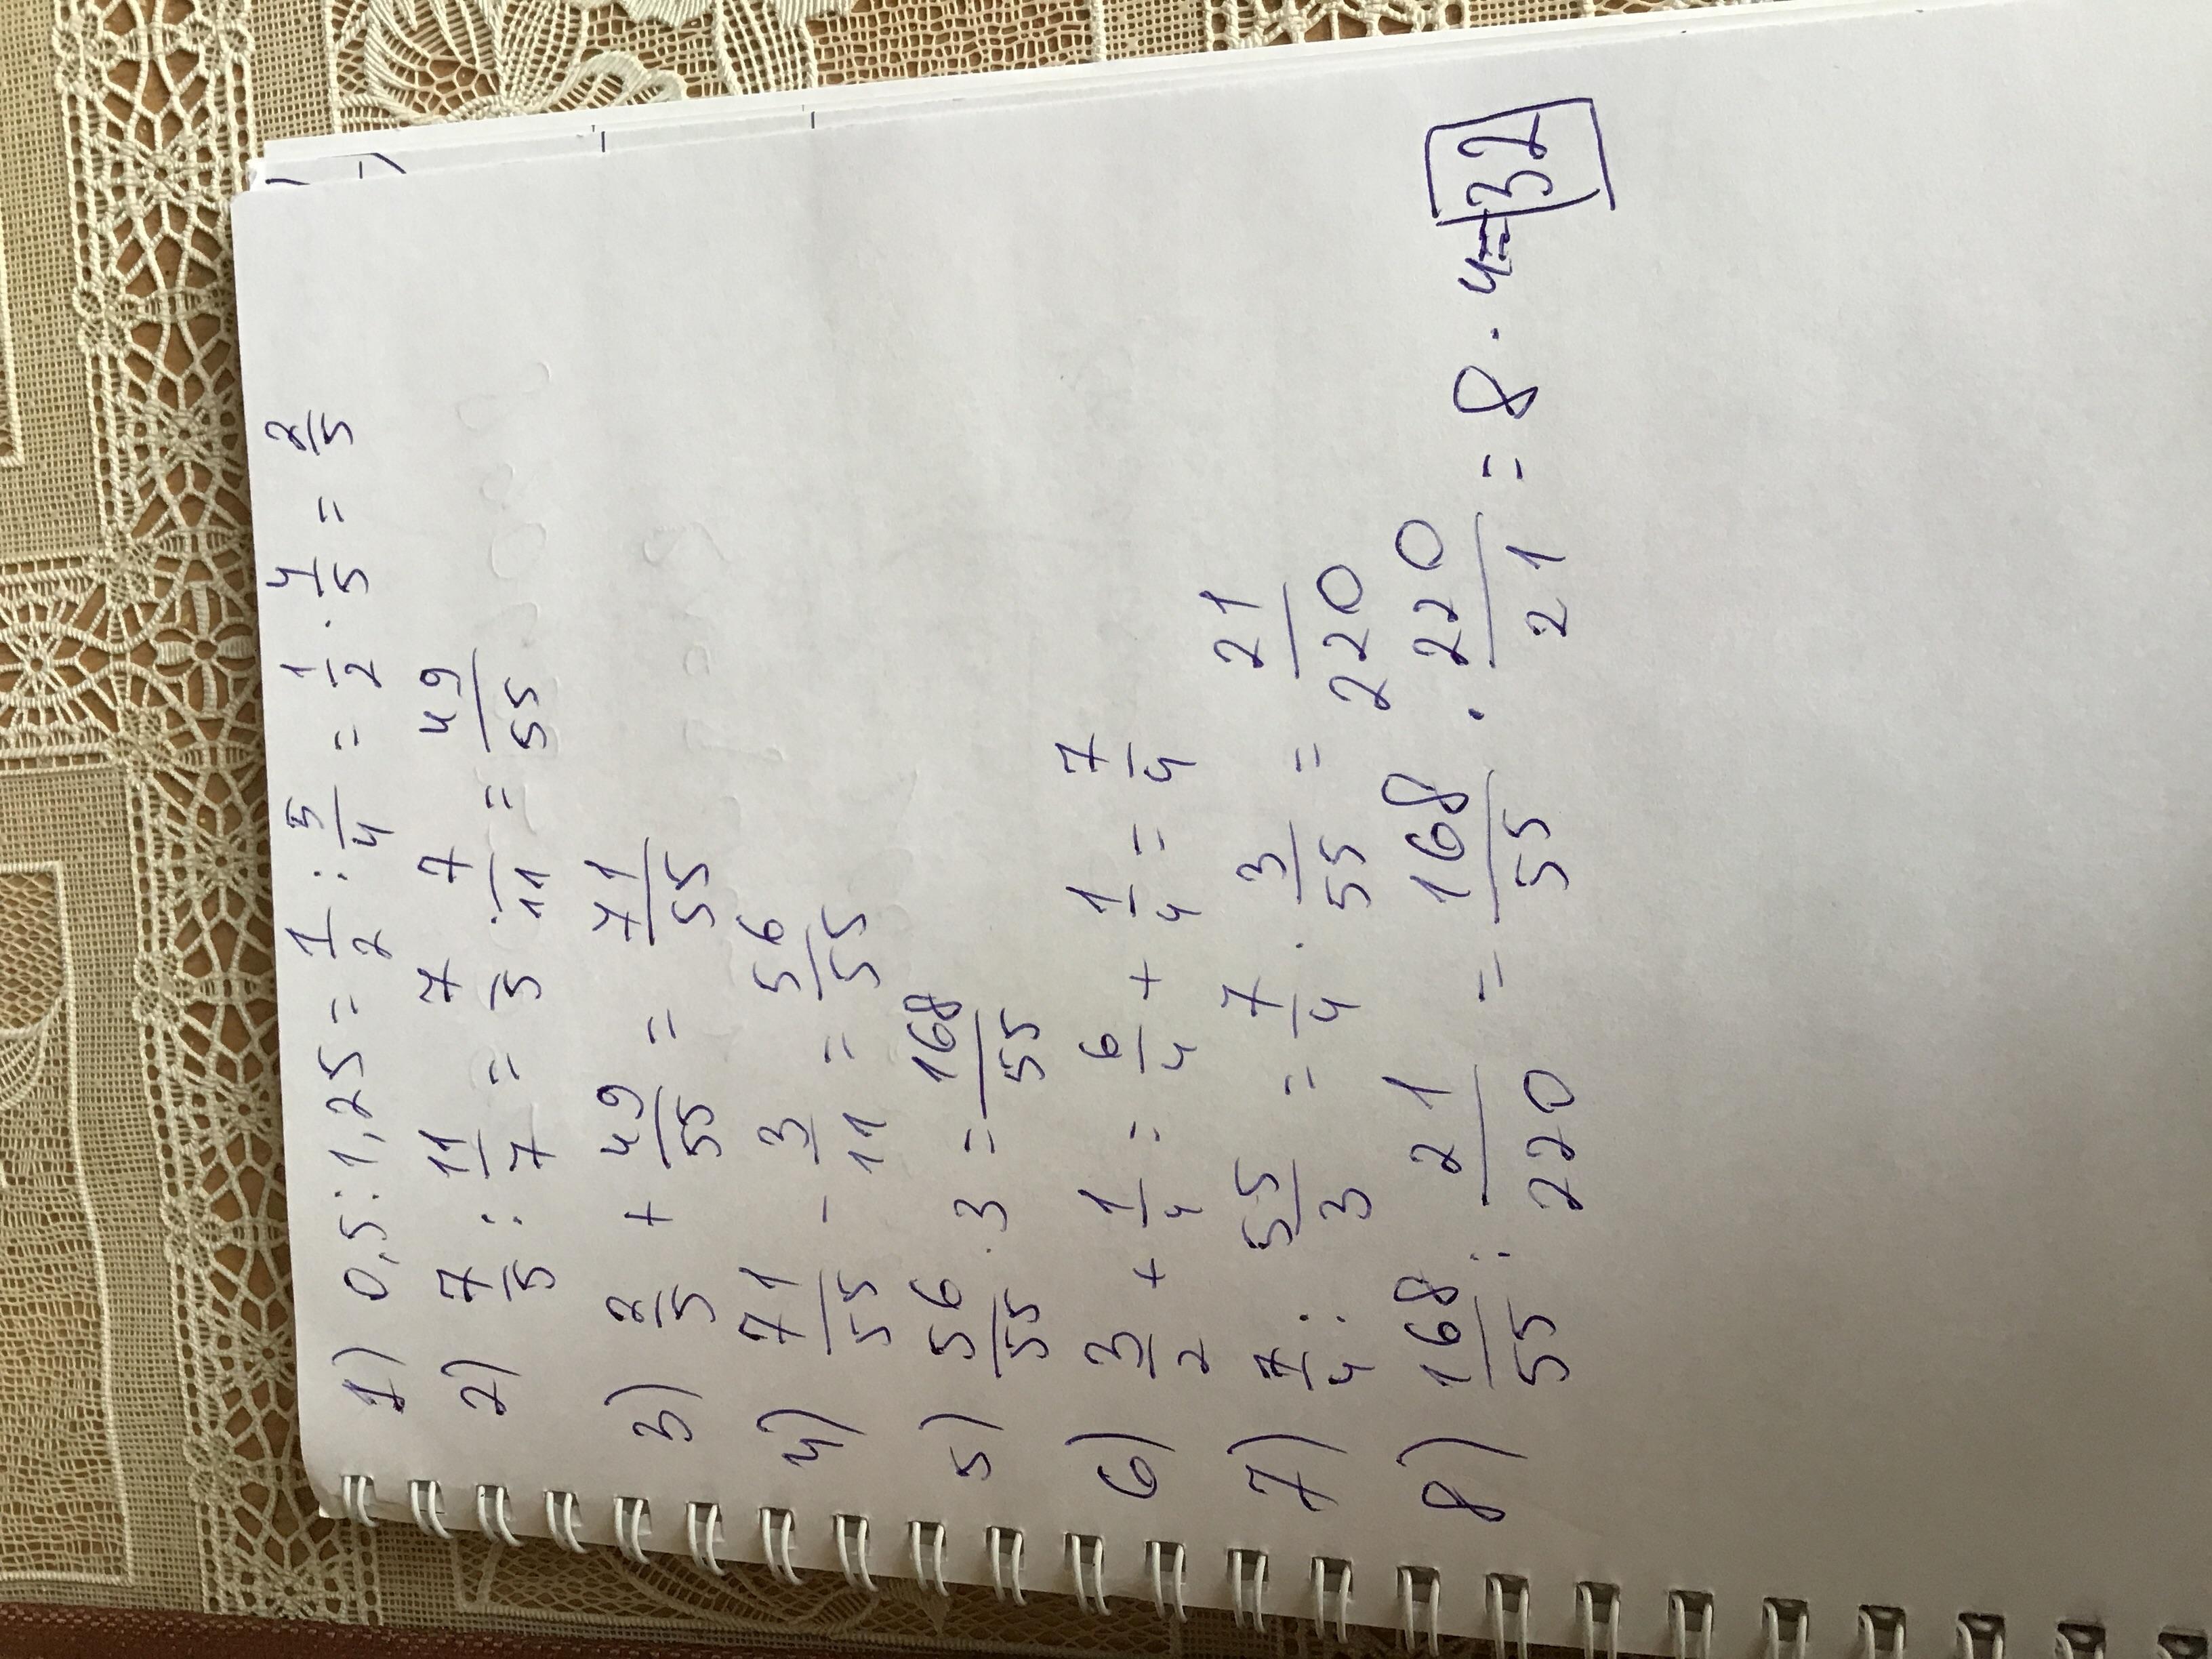 1) 0,5 : 1,25 = 1/2 : 5/4 = 1/2 · 4/5 = 2/5
2) 7/5 : 11/7 = 7/5 · 7/11 = 49/55
3) 2/5 + 49/55 = 71/55
4) 71/55 - 3/11 = 56/55
5) 56/55 · 3 = 168/55
6) 3/2 + 1/4 = 6/4 + 1/4 = 7/4
7) 7/4 : 55/3 = 7/4 · 3/55 = 21/220
8) 168/55 : 21/220 = 168/55 · 220/21 = 8 · 4 = 32